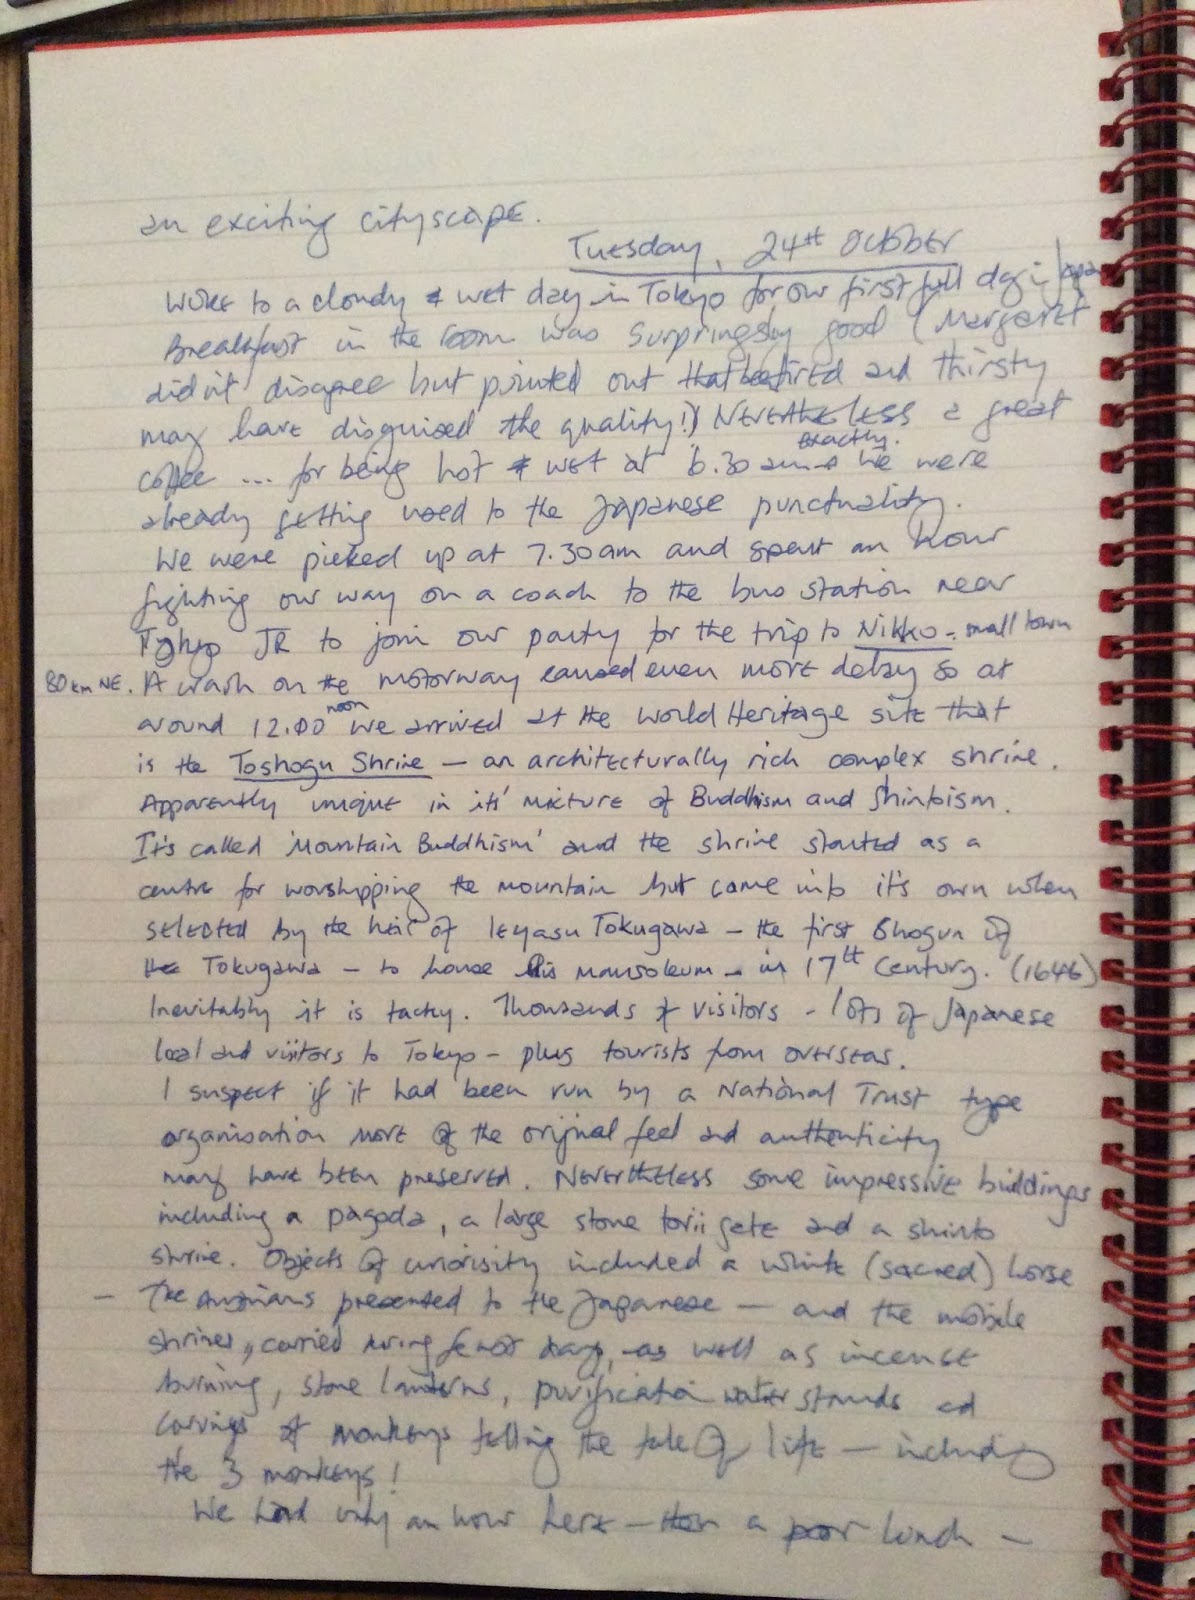 an exciting cityscape.
Tuesday, 24th October
Woke to a cloudy & wet day in Tokyo for our first full day in Japan
Breakfast in the room was surprisingly good (Margaret
didn't disagree but pointed out that being tired and thirsty
may have disguised the quality!) Nevertheless a great
exactly.
coffee ... for being hot & wet at 6.30am we were
already getting used to the Japanese punctuality.
We were picked up at 7.30am and spent an hour
fighting our way on a coach to the bus station near
Tokyo JR to join our party for the trip to Nikko - small town
80km NE. A crash on the motorway caused even more delay so at
noon
around 12.00 we arrived at the World Heritage site that
is the Toshogu Shrine — an architecturally rich complex shrine.
Apparently unique in its' mixture of Buddhism and Shintoism.
It's called 'Mountain Buddhism' and the shrine started as a
centre for worshipping the mountain but came into it's own when
selected by the heir of Ieyasu Tokugawa – the first Shogun of
the Tokugawa – to house his mausoleum – in 17th Century. (1646)
Inevitably it is tacky. Thousands of visitors - lots of Japanese
local and visitors to Tokyo - plus tourists from overseas.
I suspect if it had been run by a National Trust type
organisation more of the original feel and authenticity
may have been preserved. Nevertheless some impressive buildings
including a pagoda, a large stone torii gate and a shinto
shrine. Objects of curiosity included a white (sacred) horse
– The presented to the Japanese — and the mobile
shrines, carried during days, as well as incense
burning, stone lanterns, purification water stands and
carvings of monkeys telling the tale of life — including
the 3 monkeys!
We had only an hour here — then a poor lunch –